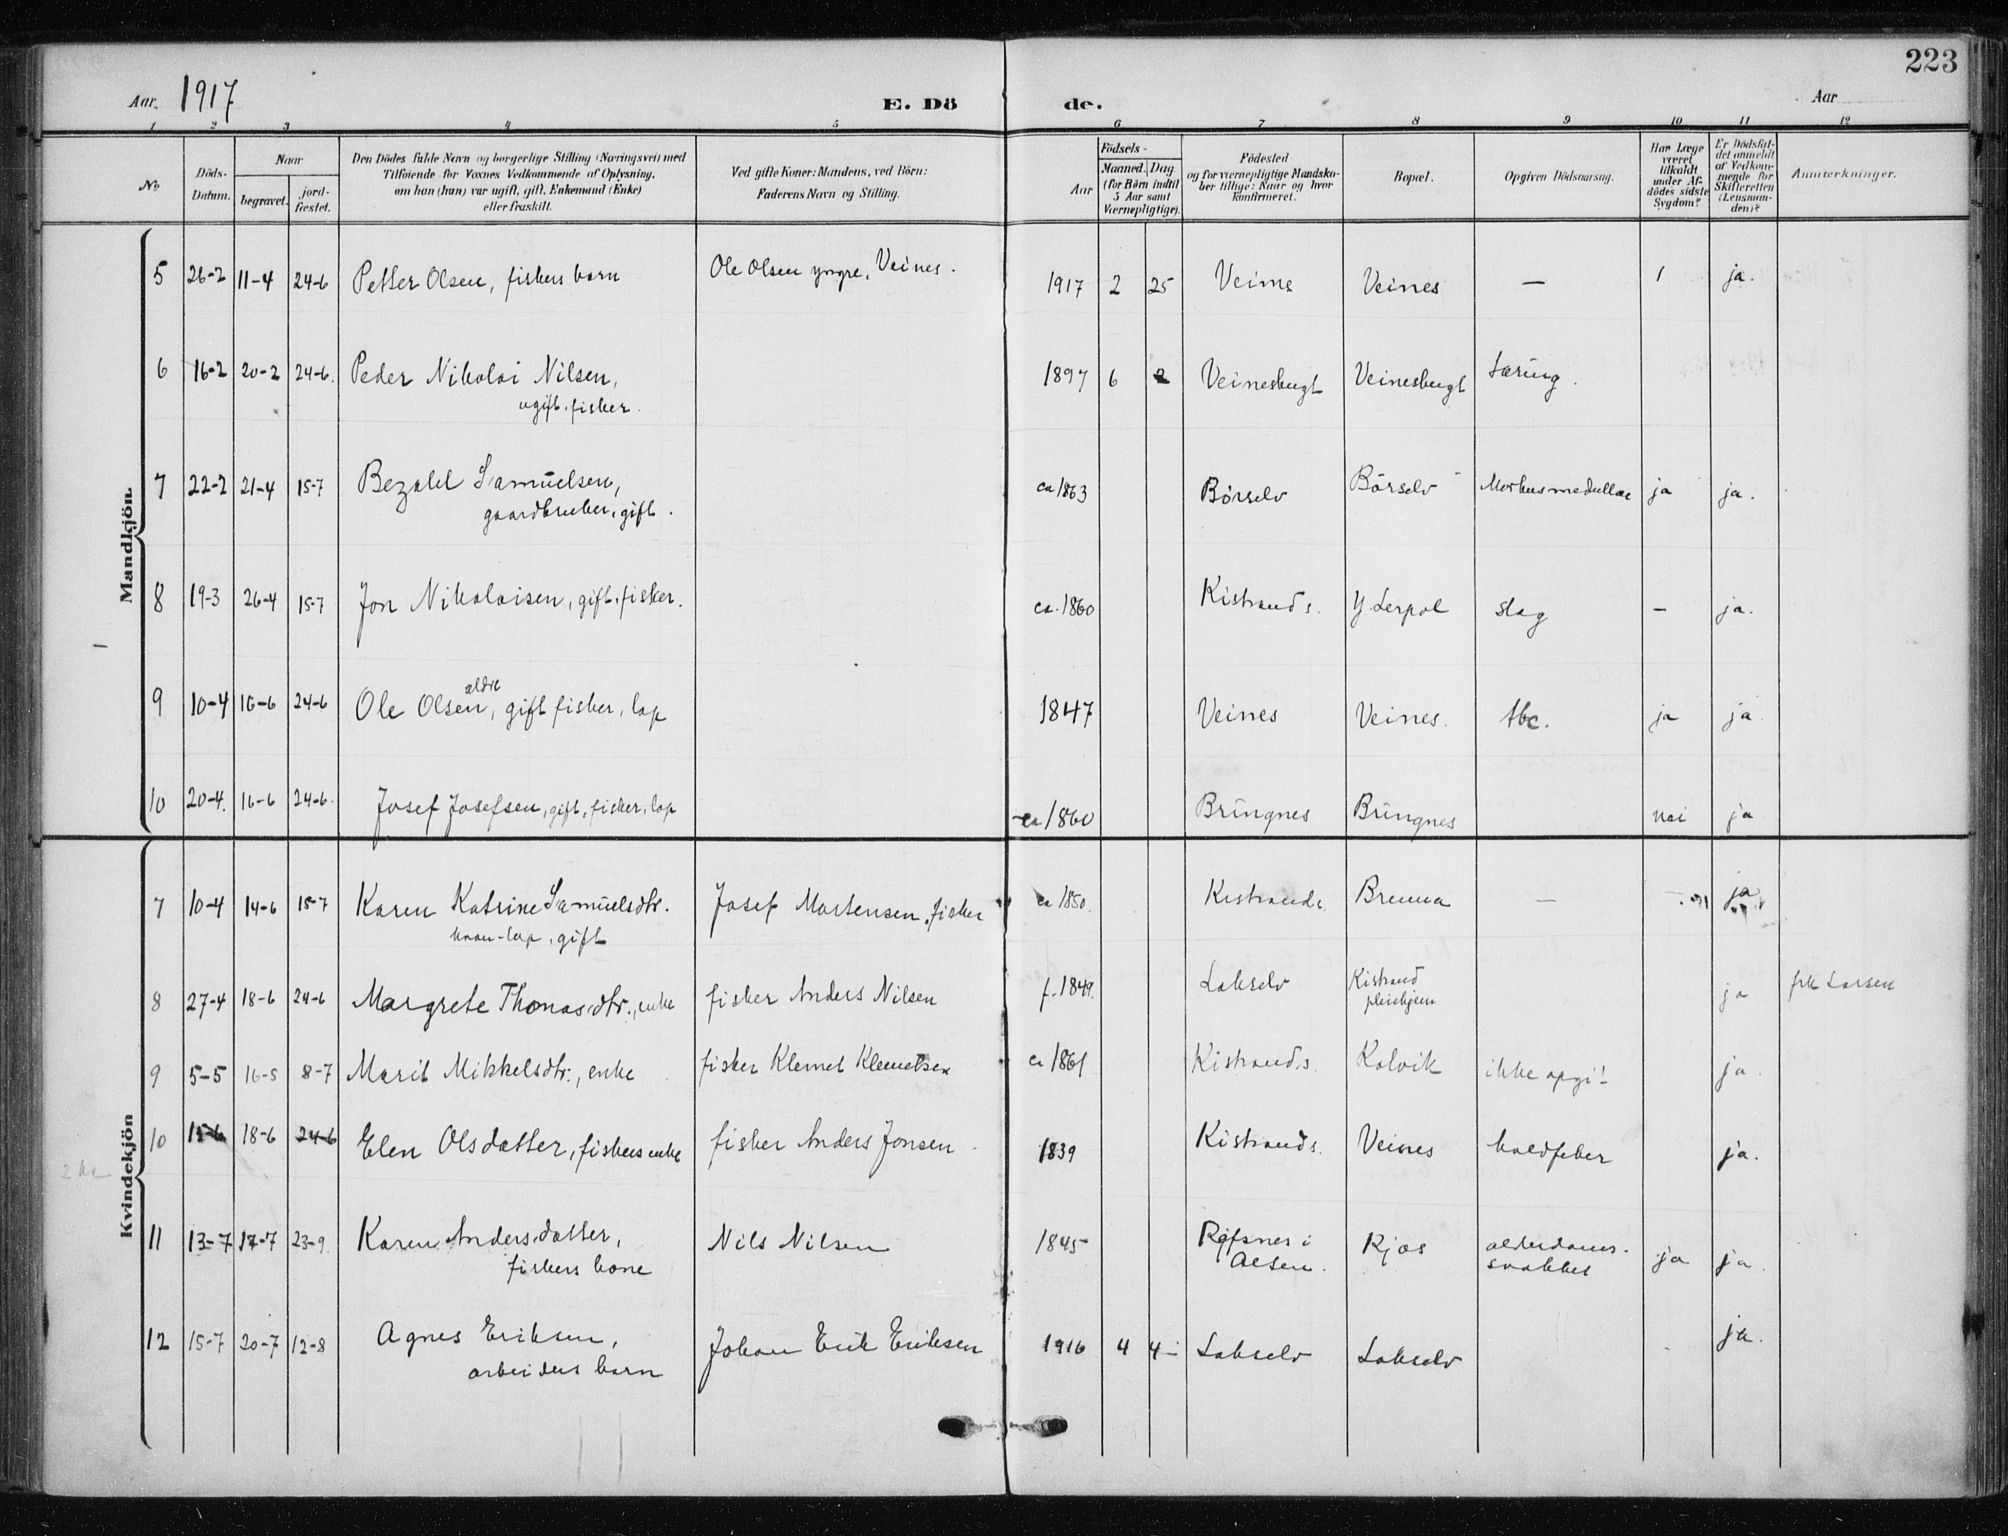 223
Aar. 1917 E. Dö de. Aar
1 2 3 4 5 6 7 8 9 10 11 12
No
Döds-Datum.
Naar
begravet.
jord-fæstet.
Den Dödes fulde Navn og borgerlige Stilling (Næringsvei) med
Tilföiende for Voxnes Vedkommende af Oplysning,
om han (hun) var ugift, gift, Enkemand (Enke)
eller fraskilt.
Ved gifte Koner: Mandens, ved Börn:
Faderens Navn og Stilling.
Födsels-
Aar
Maaned. Dag.
(for Börn indtil
5 Aar samt
Værnepligtige).
Födested
og for værnepligtige Mandska-
ber tillige: Naar og hvor
konfirmeret.
Bopæl.
Opgiven Dödsaarsag.
Har Læge
været
tilkaldt
under Af-
dödes sidste
Sygdom?
Er Dödsfal-
det anmeldt
af Vedkom-
mende for
Skifteretten
(Lensman-
den)?
Anmærkninger.
Mandkjön.
5 26-2 11-4 24-6 Petter Olsen, fiskers barn Ole Olsen yngre, Veines. 1917 2 25 Veines Veines — ja.
6 16-2 20-2 24-6. Peder Nikolai Nilsen, 1897 6 2 Veinesbugt Veinesbugt tæring.
ugift, fisker.
7 22-2 21-4 15-7 Bezalel Samuelsen, ca 1863 Börselv Börselv Morbus medullae ja ja.
gaardbruker, gift.
8 19-3 26-4 15-7 Jon Nikolaisen, gift, fisker. ca. 1860 Kistrand s. Y Lerpol slag — ja.
9 10-4 16-6 24-6 Ole Olsen ældre, gift fisker, lap 1847 Veines Veines. tbc. ja ja.
10 20-4. 16-6 24-6. Josef Josefsen, gift, fisker, lap ca 1860 Bringnes Bringnes nei ja
Kvindekjön
7 10-4 14-6 15-7 Karen Katrine Samuelsdtr. Josef Mortensen, fisker ca 1850. Kistrand s. Brenna — ja
kvæn-lap, gift
8 27-4 18-6 24-6 Margrete Thomasdtr., enke fisker Anders Nilsen f. 1849. Lakselv Kistrand
pleiehjem ja frk Larsen
9 5-5 16-5 8-7 Marit Mikkelsdtr., enke fisker Klemet Klemetsen ca 1861 Kistrand s. Kolvik ikke opgi! ja
10 15-6 18-6 24-6 Elen Olsdatter, fiskers enke fisker Anders Jonsen 1839 Kistrand s. Veines koldfeber ja.
11 13-7 17-7 23-9 Karen Andersdatter, Nils Nilsen 1845 Refsnes i Kjæs alderdoms-
fiskers kone Alsen. svakhet ja ja.
12 15-7 20-7 12-8 Agnes Eriksen, Johan Erik Eriksen 1916 4 4 Lakselv Lakselv ja.
arbeiders barn